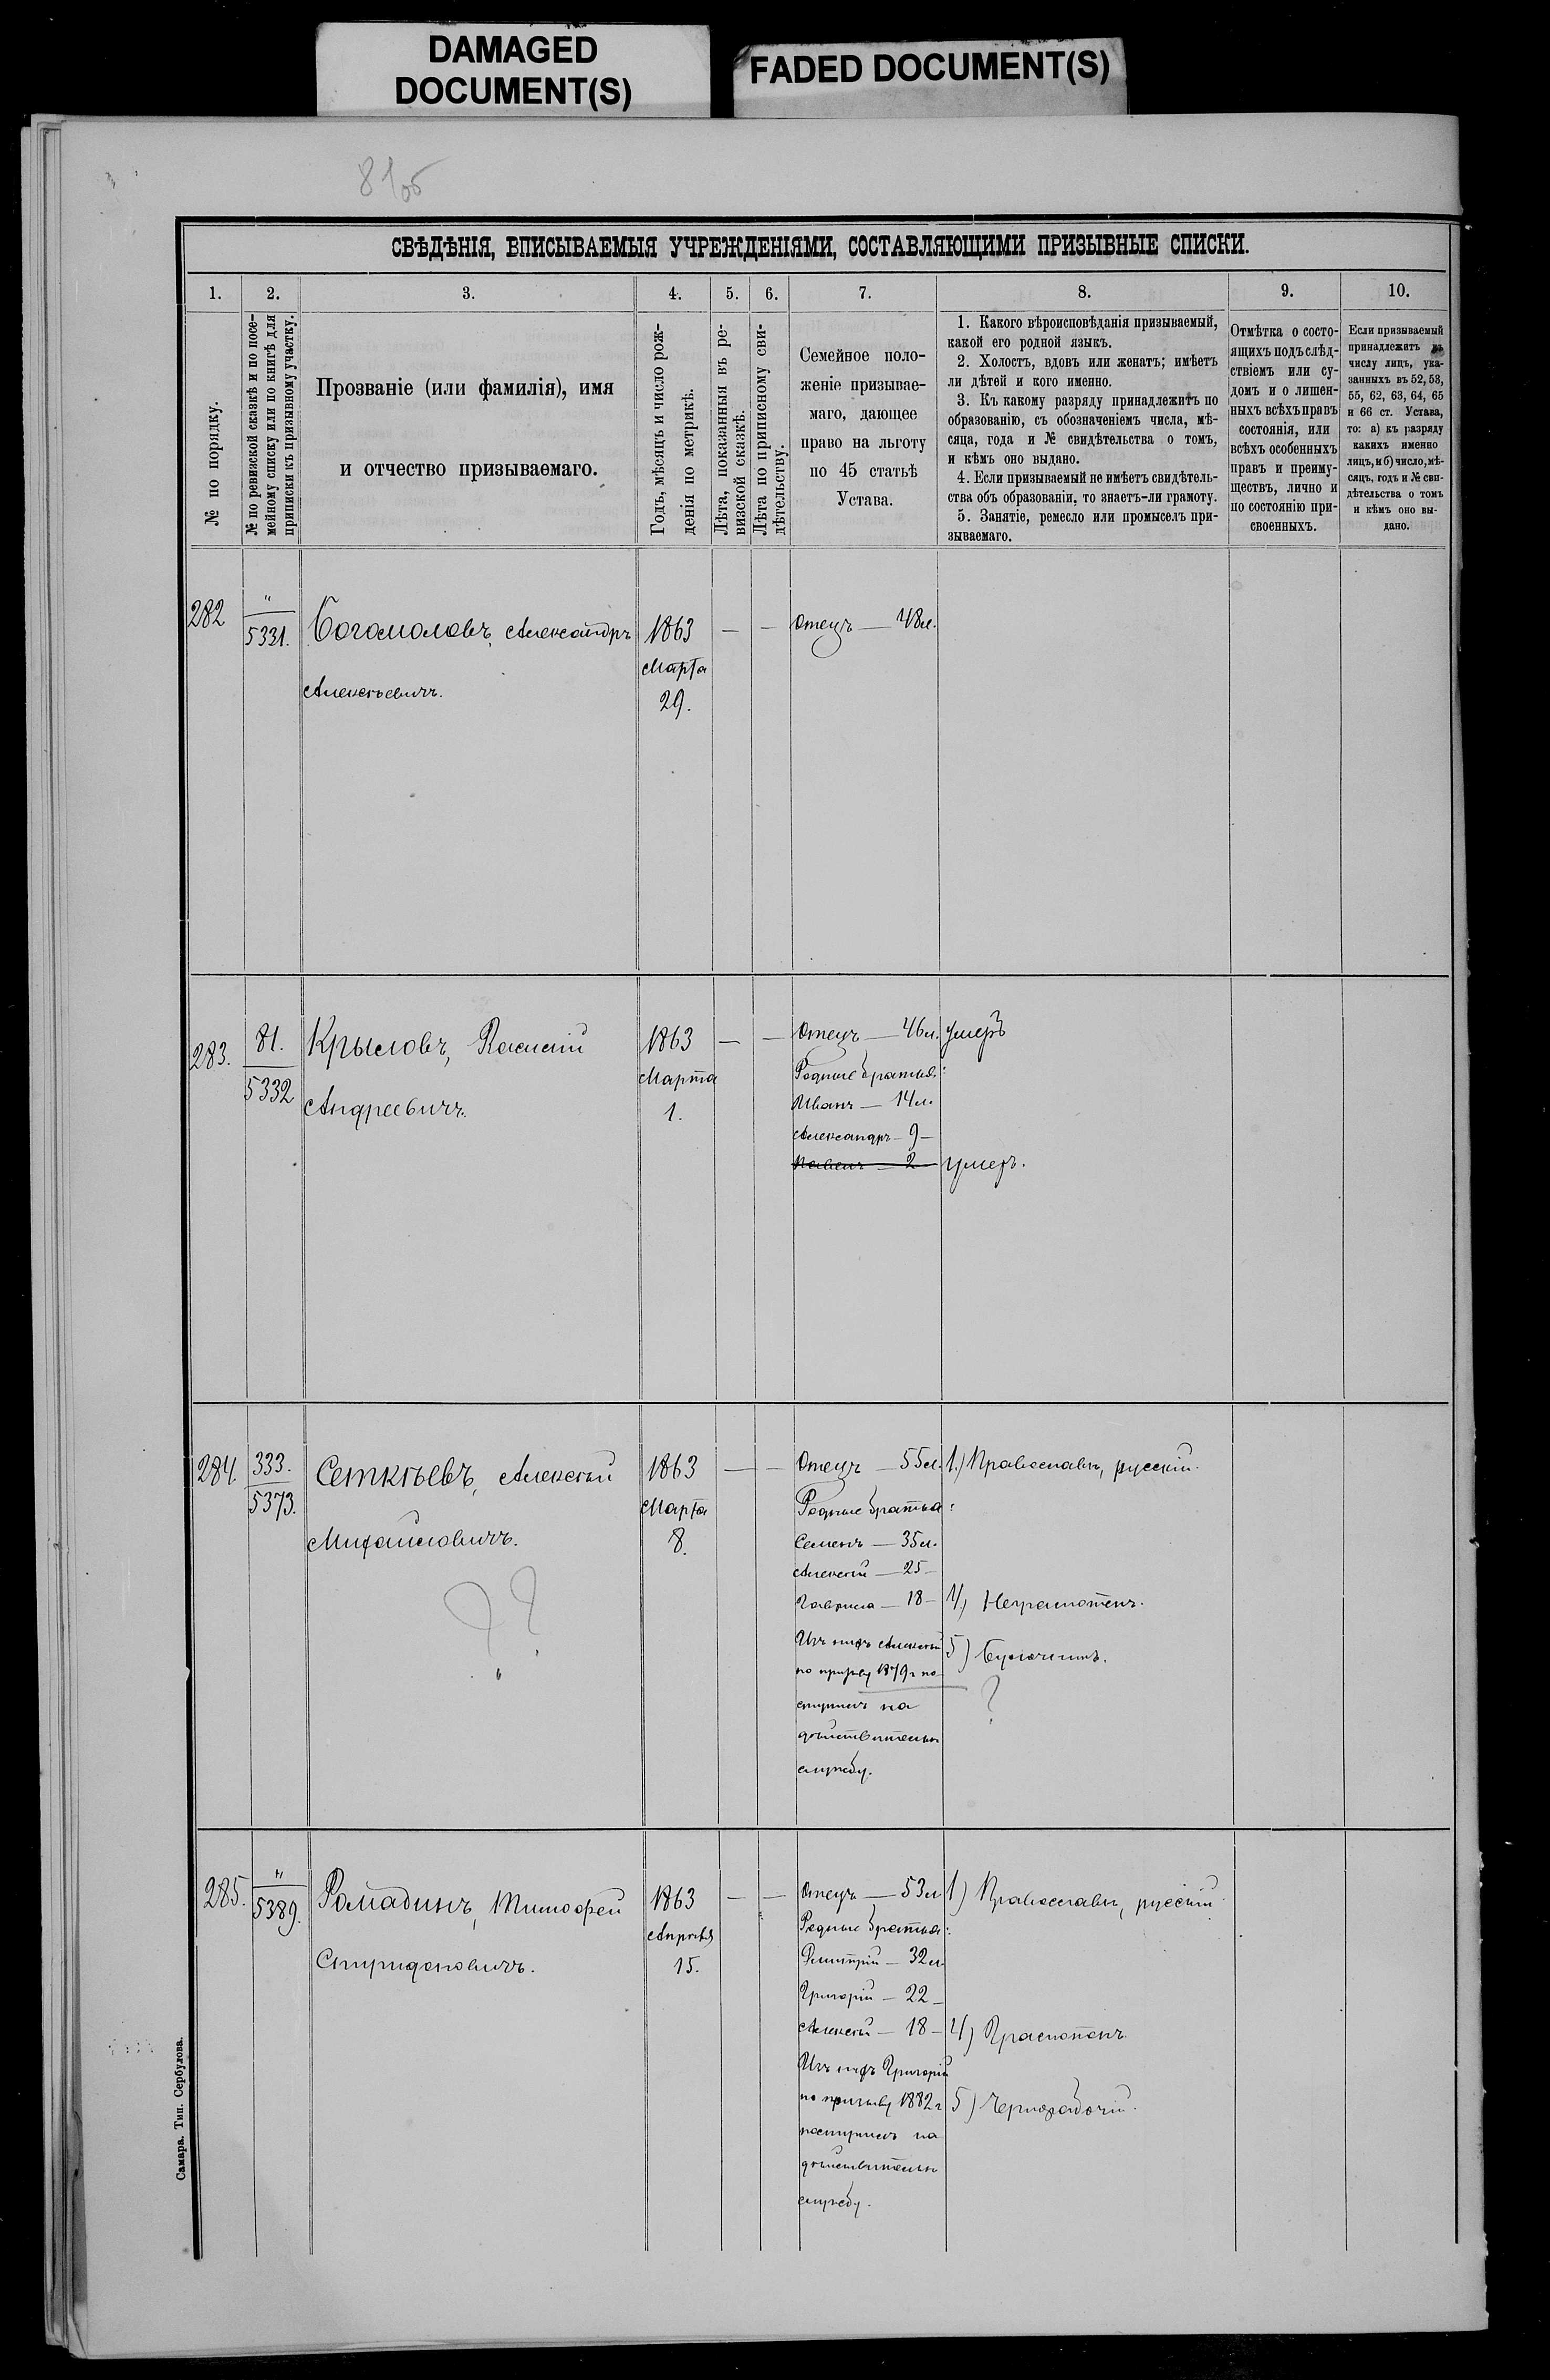 DAMAGED
DOCUMENT(S)
FADED DOCUMENT(S)
81об
СВѢДѢНІЯ, ВПИСЫВАЕМЫЯ УЧРЕЖДЕНІЯМИ, СОСТАВЛЯЮЩИМИ ПРИЗЫВНЫЕ СПИСКИ.
1.
2.
3.
4.
5.
6.
7.
8.
9.
10.
№ по порядку.
№ по ревизской сказкѣ и по посе-
мейному списку или по книгѣ для
приписки къ призывному участку.
Прозваніе (или фамилія), имя
и отчество призываемаго.
Годъ, мѣсяцъ и число рож-
денія по метрикѣ.
Лѣта, показанныя въ ре-
визской сказкѣ.
Лѣта по приписному сви-
дѣтельству.
Семейное поло-
женіе призывае-
маго, дающее
право на льготу
по 45 статьѣ
Устава.
1. Какого вѣроисповѣданія призываемый,
какой его родной языкъ.
2. Холостъ, вдовъ или женатъ; имѣетъ
ли дѣтей и кого именно.
3. Къ какому разряду принадлежитъ по
образованію, съ обозначеніемъ числа, мѣ-
сяца, года и № свидѣтельства о томъ,
и кѣмъ оно выдано.
4. Если призываемый не имѣетъ свидѣтель-
ства объ образованіи, то знаетъ-ли грамоту.
5. Занятіе, ремесло или промыселъ при-
зываемаго.
Отмѣтка о состо-
ящихъ подъ слѣд-
ствіемъ или су-
домъ и о лишен-
ныхъ всѣхъ правъ
состоянія, или
всѣхъ особенныхъ
правъ и преиму-
ществъ, лично и
по состоянію при-
своенныхъ.
Если призываемый
принадлежитъ къ
числу лицъ, ука-
занныхъ въ 52, 53,
55, 62, 63, 64, 65
и 66 ст. Устава,
то: а) къ разряду
какихъ именно
лицъ, и б) число, мѣ-
сяцъ, годъ и № сви-
дѣтельства о томъ
и кѣмъ оно вы-
дано.
282
"
5331.
Богомоловъ, Александръ
Алексѣевичъ.
1863
Марта
29.
— —
Отецъ — 48 л.
283.
81.
5332
Крыловъ, Василій
Андреевичъ.
1863
Марта
1.
— —
Отецъ — 46 л. умеръ
Родные братья:
Иванъ — 14 л.
Александръ — 9 —
Павелъ — 2 умеръ.
284.
333.
5373.
Сеткѣевъ, Алексѣй
Михайловичъ.
??
1863
Марта
8.
— —
Отецъ — 55 л.
Родные братья:
Семенъ — 35 л.
Алексѣй — 25 —
Гаврила — 18 —
Изъ нихъ Алексѣй
по призыву 1879 г по
ступилъ на
дѣйствительн
службу.
1.) Православн, русскій.
4) Неграмотенъ.
5) Булочникъ.
?
285.
"
5389.
Рамадинъ, Тимофей
Спиридоновичъ.
1863
Апрѣля
15.
— —
Отецъ — 53 л
Родные братья:
Дмитрій — 32 л.
Григорій — 22 —
Алексѣй — 18 —
Изъ нихъ Григорій
по призыву 1882 г
поступилъ на
дѣйствительн
службу.
1) Православн, русскій.
4) Грамотенъ.
5) Чернорабочій.
Самара. Тип. Сербулова.